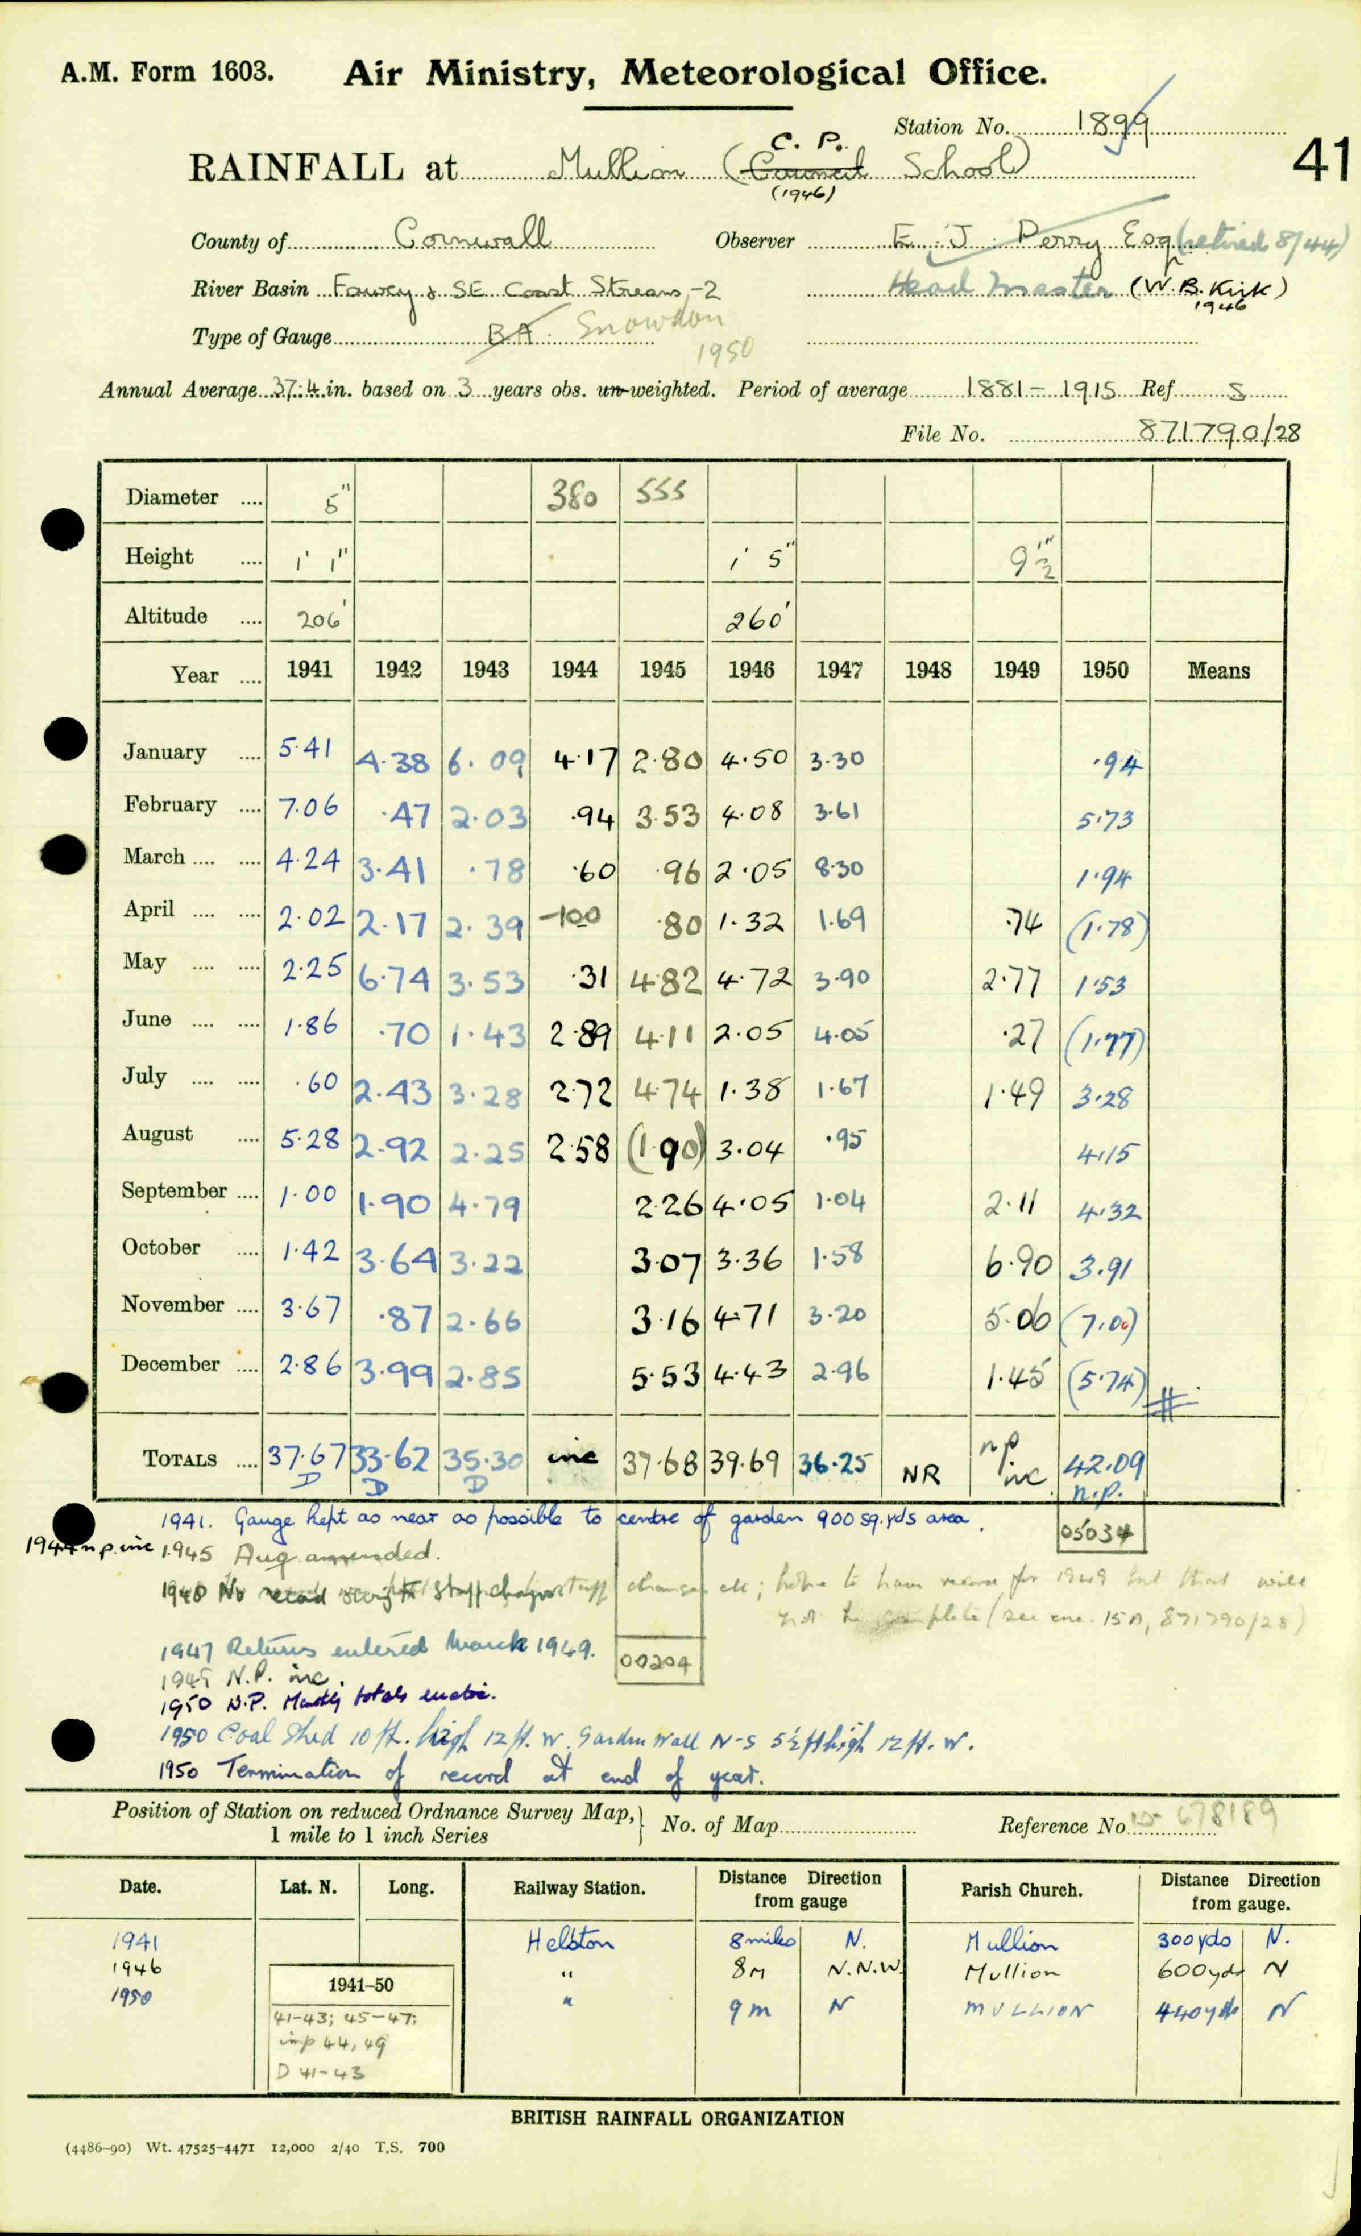 A.M. Form 1603. Air Ministry, Meteorological Office.
Station No. 1899
C. P.
RAINFALL at Mullion (Council School)
(1946)
41
County of Cornwall Observer E. J. Perry Esq (retired 8/44)
River Basin Fowey & SE Coast Streams -2 Head Master (W.B. Kirk)
1946
Type of Gauge BA Snowdon
1950
Annual Average 37.4 in. based on 3 years obs. un-weighted. Period of average 1881 – 1915 Ref S
File No. 871790/28
Diameter .... 5" 380 555
Height .... 1' 1" 1' 5" 9½"
Altitude .... 206' 260'
Year .... 1941 1942 1943 1944 1945 1946 1947 1948 1949 1950 Means
January .... 5.41 4.38 6.09 4.17 2.80 4.50 3.30 .94
February .... 7.06 .47 2.03 .94 3.53 4.08 3.61 5.73
March .... .... 4.24 3.41 .78 .60 .96 2.05 8.30 1.94
April .... .... 2.02 2.17 2.39 -100 .80 1.32 1.69 .74 (1.78)
May .... .... 2.25 6.74 3.53 .31 4.82 4.72 3.90 2.77 1.53
June .... .... 1.86 .70 1.43 2.89 4.11 2.05 4.05 .27 (1.77)
July .... .... .60 2.43 3.28 2.72 4.74 1.38 1.67 1.49 3.28
August .... 5.28 2.92 2.25 2.58 (1.90) 3.04 .95 4.15
September .... 1.00 1.90 4.79 2.26 4.05 1.04 2.11 4.32
October .... 1.42 3.64 3.22 3.07 3.36 1.58 6.90 3.91
November .... 3.67 .87 2.66 3.16 4.71 3.20 5.06 (7.00)
December .... 2.86 3.99 2.85 5.53 4.43 2.96 1.45 (5.74) #
TOTALS .... 37.67 33.62 35.30 inc 37.68 39.69 36.25 NR n.p. inc 42.09
D D D n.p.
1941. Gauge kept as near as possible to centre of garden 900 sq. yds area.
05034
1944 n.p. inc 1945 Aug amended.
1948 No record staff changes etc; hope to have record for 1949 but that will
not be complete (see enc. 15A, 871790/28)
1947 Returns entered March 1949.
00204
1949 N.P. inc.
1950 N.P. Monthly totals
1950 Coal Shed 10 ft. high 12 ft. W. Garden Wall N-S 5½ ft high 12 ft. W.
1950 Termination of record at end of year.
Position of Station on reduced Ordnance Survey Map, 1 mile to 1 inch Series } No. of Map Reference No. 10 678189
Date. Lat. N. Long. Railway Station. Distance Direction from gauge Parish Church. Distance Direction from gauge.
1941 Helston 8 miles N. Mullion 300 yds N.
1946 " 8 M N.N.W. Mullion 600 yds N
1950 " 9 m N MULLION 440 yds N
1941-50
41-43; 45-47;
imp 44, 49
D 41-43
BRITISH RAINFALL ORGANIZATION
(4486-90) Wt. 47525-4471 12,000 2/40 T.S. 700